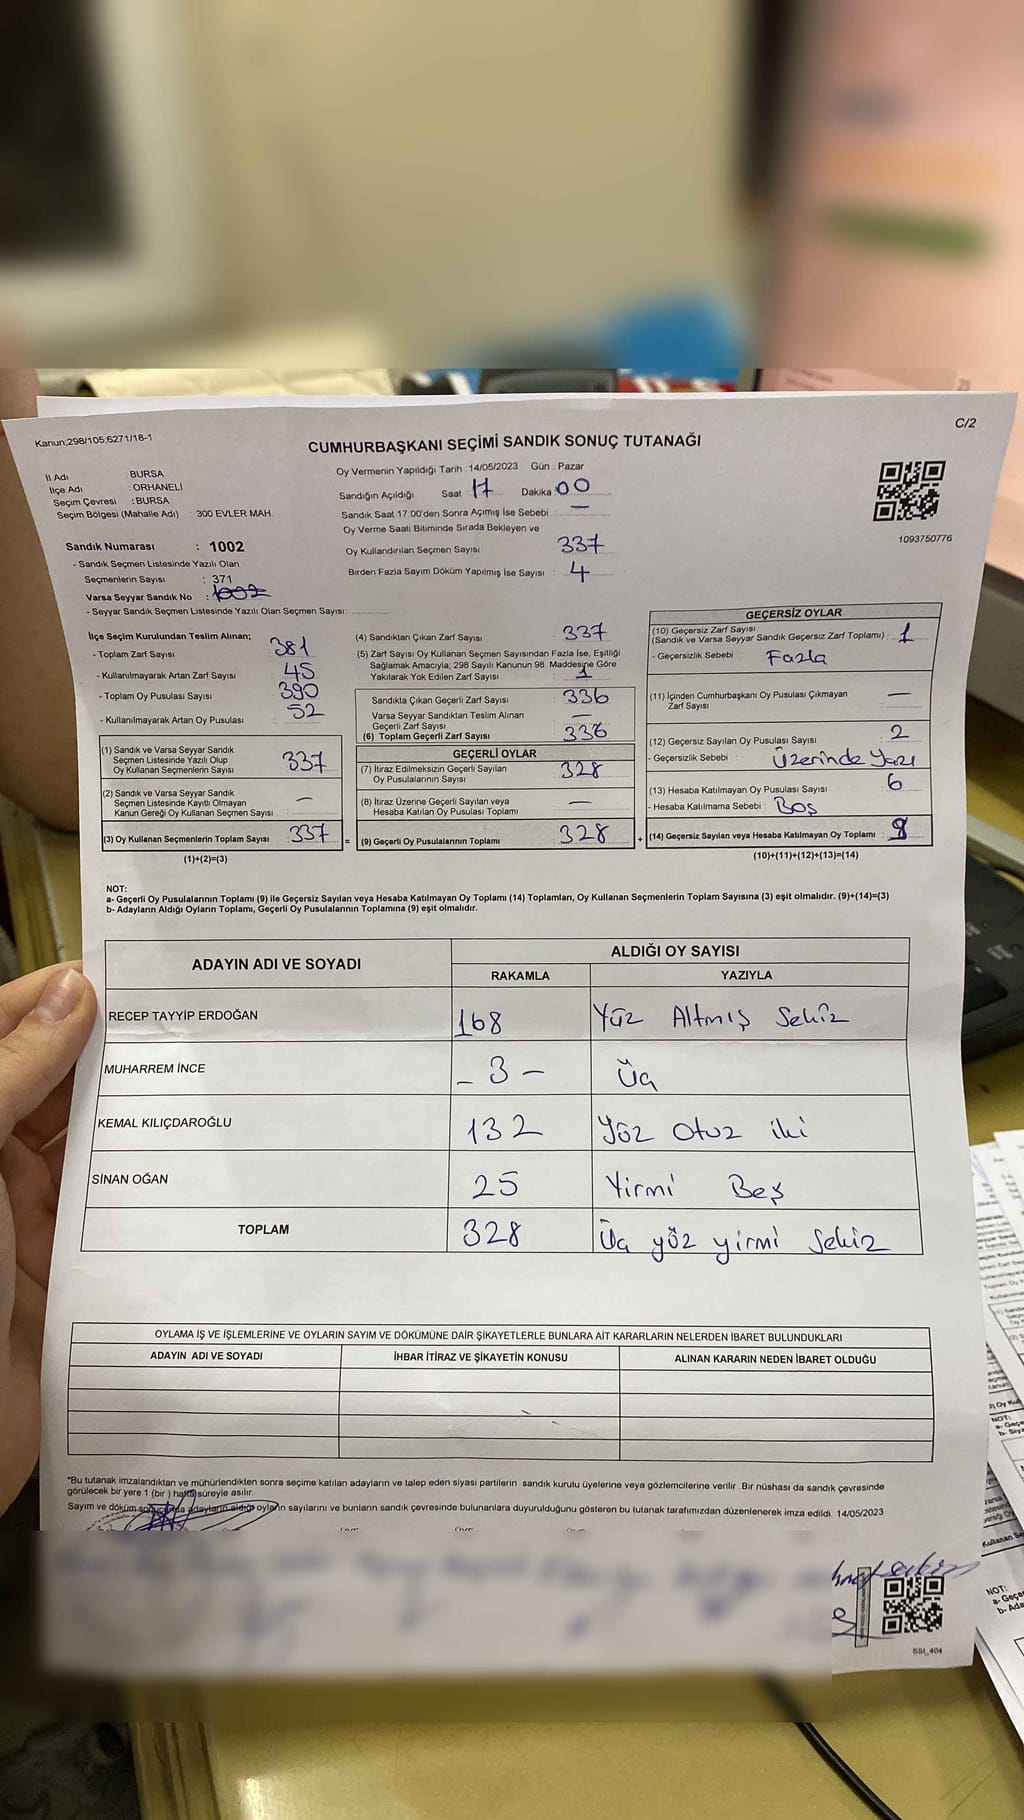 C/2
Kanun;298/105;6271/18-1
CUMHURBAŞKANI SEÇİMİ SANDIK SONUÇ TUTANAĞI
İl Adı : BURSA
İlçe Adı : ORHANELİ
Seçim Çevresi : BURSA
Seçim Bölgesi (Mahalle Adı) : 300 EVLER MAH.
Sandık Numarası : 1002
- Sandık Seçmen Listesinde Yazılı Olan
Seçmenlerin Sayısı : 371
Varsa Seyyar Sandık No : 1002
- Seyyar Sandık Seçmen Listesinde Yazılı Olan Seçmen Sayısı:
Oy Vermenin Yapıldığı Tarih :14/05/2023 Gün : Pazar
Sandığın Açıldığı Saat 17 Dakika :00
Sandık Saat 17:00'den Sonra Açımış İse Sebebi : —
Oy Verme Saati Bitiminde Sırada Bekleyen ve
Oy Kullandırılan Seçmen Sayısı : 337
Birden Fazla Sayım Döküm Yapılmış İse Sayısı : 4
1093750776
İlçe Seçim Kurulundan Teslim Alınan;
- Toplam Zarf Sayısı : 381
- Kullanılmayarak Artan Zarf Sayısı : 45
- Toplam Oy Pusulası Sayısı : 390
- Kullanılmayarak Artan Oy Pusulası : 52
(1) Sandık ve Varsa Seyyar Sandık
Seçmen Listesinde Yazılı Olup
Oy Kullanan Seçmenlerin Sayısı : 337
(2) Sandık ve Varsa Seyyar Sandık
Seçmen Listesinde Kayıtlı Olmayan
Kanun Gereği Oy Kullanan Seçmen Sayısı : —
(3) Oy Kullanan Seçmenlerin Toplam Sayısı : 337
(1)+(2)=(3)
(4) Sandıktan Çıkan Zarf Sayısı : 337
(5) Zarf Sayısı Oy Kullanan Seçmen Sayısından Fazla İse, Eşitliği
Sağlamak Amacıyla, 298 Sayılı Kanunun 98. Maddesine Göre
Yakılarak Yok Edilen Zarf Sayısı : 1
Sandıkta Çıkan Geçerli Zarf Sayısı : 336
Varsa Seyyar Sandıktan Teslim Alınan
Geçerli Zarf Sayısı : —
(6) Toplam Geçerli Zarf Sayısı : 336
GEÇERLİ OYLAR
(7) İtiraz Edilmeksizin Geçerli Sayılan
Oy Pusulalarının Sayısı : 328
(8) İtiraz Üzerine Geçerli Sayılan veya
Hesaba Katılan Oy Pusulası Toplamı : —
= (9) Geçerli Oy Pusulalarının Toplamı : 328 +
GEÇERSİZ OYLAR
(10) Geçersiz Zarf Sayısı
(Sandık ve Varsa Seyyar Sandık Geçersiz Zarf Toplamı) : 1
- Geçersizlik Sebebi : Fazla
(11) İçinden Cumhurbaşkanı Oy Pusulası Çıkmayan
Zarf Sayısı : —
(12) Geçersiz Sayılan Oy Pusulası Sayısı : 2
- Geçersizlik Sebebi : Üzerinde Yazı
(13) Hesaba Katılmayan Oy Pusulası Sayısı : 6
- Hesaba Katılmama Sebebi : Boş
(14) Geçersiz Sayılan veya Hesaba Katılmayan Oy Toplamı :
(10)+(11)+(12)+(13)=(14)
NOT:
a- Geçerli Oy Pusulalarının Toplamı (9) ile Geçersiz Sayılan veya Hesaba Katılmayan Oy Toplamı (14) Toplamları, Oy Kullanan Seçmenlerin Toplam Sayısına (3) eşit olmalıdır. (9)+(14)=(3)
b- Adayların Aldığı Oyların Toplamı, Geçerli Oy Pusulalarının Toplamına (9) eşit olmalıdır.
ADAYIN ADI VE SOYADI
ALDIĞI OY SAYISI
RAKAMLA YAZIYLA
RECEP TAYYİP ERDOĞAN 168 Yüz Altmış Sekiz
MUHARREM İNCE - 3 - Üç
KEMAL KILIÇDAROĞLU 132 Yüz Otuz iki
SİNAN OĞAN 25 Yirmi Beş
TOPLAM 328 Üç yüz yirmi Sekiz
OYLAMA İŞ VE İŞLEMLERİNE VE OYLARIN SAYIM VE DÖKÜMÜNE DAİR ŞİKAYETLERLE BUNLARA AİT KARARLARIN NELERDEN İBARET BULUNDUKLARI
ADAYIN ADI VE SOYADI İHBAR İTİRAZ VE ŞİKAYETİN KONUSU ALINAN KARARIN NEDEN İBARET OLDUĞU
"Bu tutanak imzalandıktan ve mühürlendikten sonra seçime katılan adayların ve talep eden siyasi partilerin sandık kurulu üyelerine veya gözlemcilerine verilir. Bir nüshası da sandık çevresinde
görülecek bir yere 1 (bir) hafta süreyle asılır.
Sayım ve döküm sonucunda adayların aldığı oyların sayılarını ve bunların sandık çevresinde bulunanlara duyurulduğunu gösteren bu tutanak tarafımızdan düzenlenerek imza edildi. 14/05/2023
SSI_404